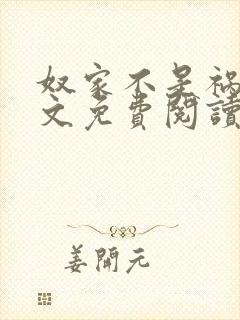 奴家不是祸
文免費閱讀
姜開元